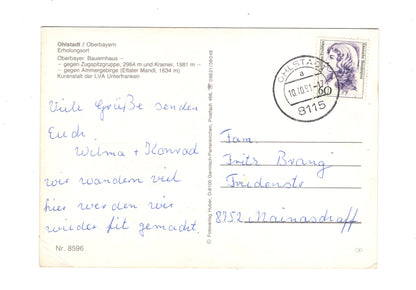 Ohlstadt / Oberbayern
Erholungsort
Oberbayer. Bauernhaus -
- gegen Zugspitzgruppe, 2964 m und Kramer, 1981 m -
- gegen Ammergebirge (Ettaler Mandl, 1634 m)
Kuranstalt der LVA Unterfranken
Viele Grüße senden
Euch
Wilma + Konrad
wir wandern viel
hier werden wir
wieder fit gemacht.
Nr. 8596
© Foto-Verlag Huber, D-8100 Garmisch-Partenkirchen, Postfach 466,
OHLSTADT
a
10.10.91-17
8115
60
Fam.
Fritz Brang
Friedenstr
8752 Mainaschaff